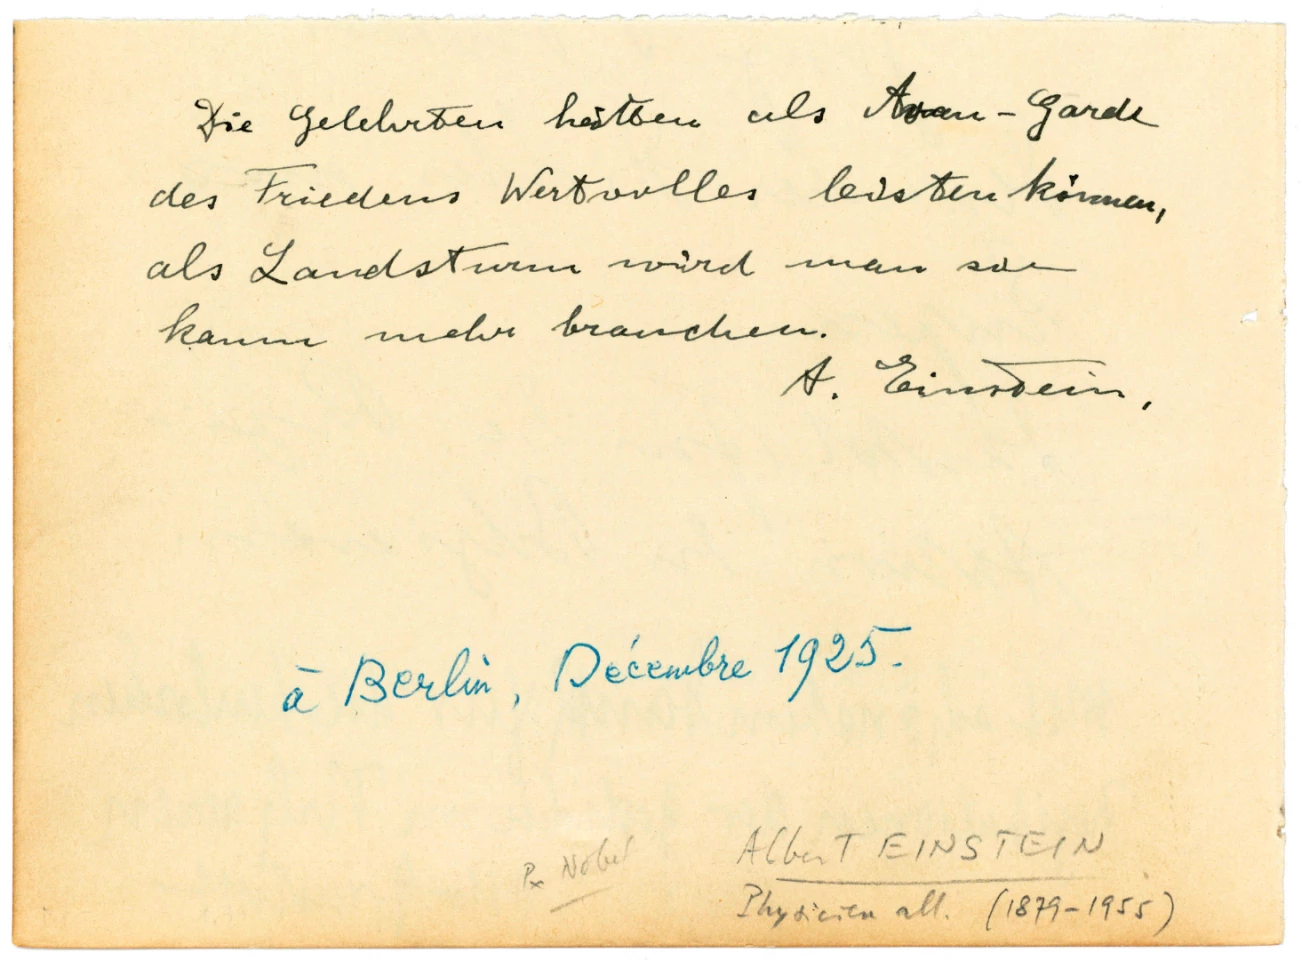 Die Gelehrten hätten als Avan-Garde
des Friedens Wertvolles leisten können,
als Landsturm wird man sie
kaum mehr brauchen.
A. Einstein.
à Berlin, Décembre 1925.
Px Nobel
Albert EINSTEIN
Physicien all. (1879-1955)